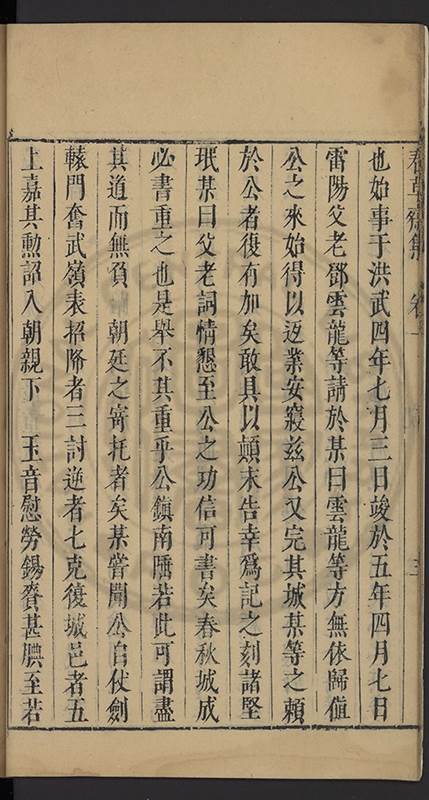 春草齋集 卷一 三
也始事于洪武四年七月三日竣於五年四月七日
雷陽父老鄧雲龍等請於某曰雲龍等方無依歸値
公之來始得以返業安寢兹公又完其城某等之賴
於公者復有加矣敢具以顛末告幸爲記之刻諸堅
珉某曰父老詞情懇至公之功信可書矣春秋城成
必書重之也是舉不其重乎公鎮南陲若此可謂盡
其道而無負 朝廷之寄托者矣某嘗聞公自仗劍
轅門奮武嶺表招降者三討逆者七克復城邑者五
上嘉其勲詔入朝親下 玉音慰勞錫賚甚腆至若